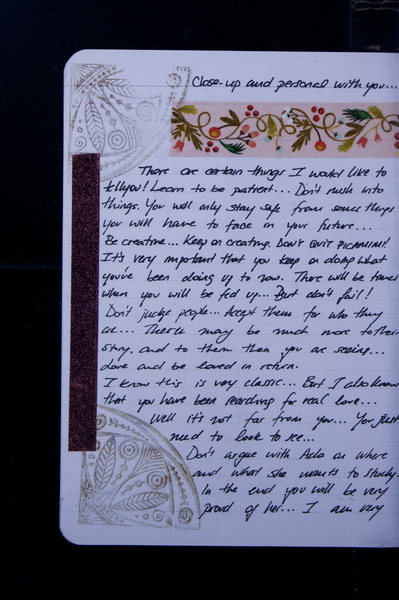 Close-up and personal with you...
There are certain things I would like to
tell you! Learn to be patient... Don't rush into
things. You will only stay safe from some things
you will have to face in your future...
Be creative... Keep on creating. DON'T QUIT
It's very important that you keep on doing what
you've been doing up to now. There will be times
when you will be fed up... But don't fail!
Don't judge people... Accept them for who they
are... There may be much more to their
story, and to them then you are seeing...
Love and be loved in return.
I know this is very classic... But I also know
that you have been searching for real love...
Well it's not far from you... You just
need to look to see...
Don't argue with Ada on where
and what she wants to study.
In the end you will be very
proud of her... I am very